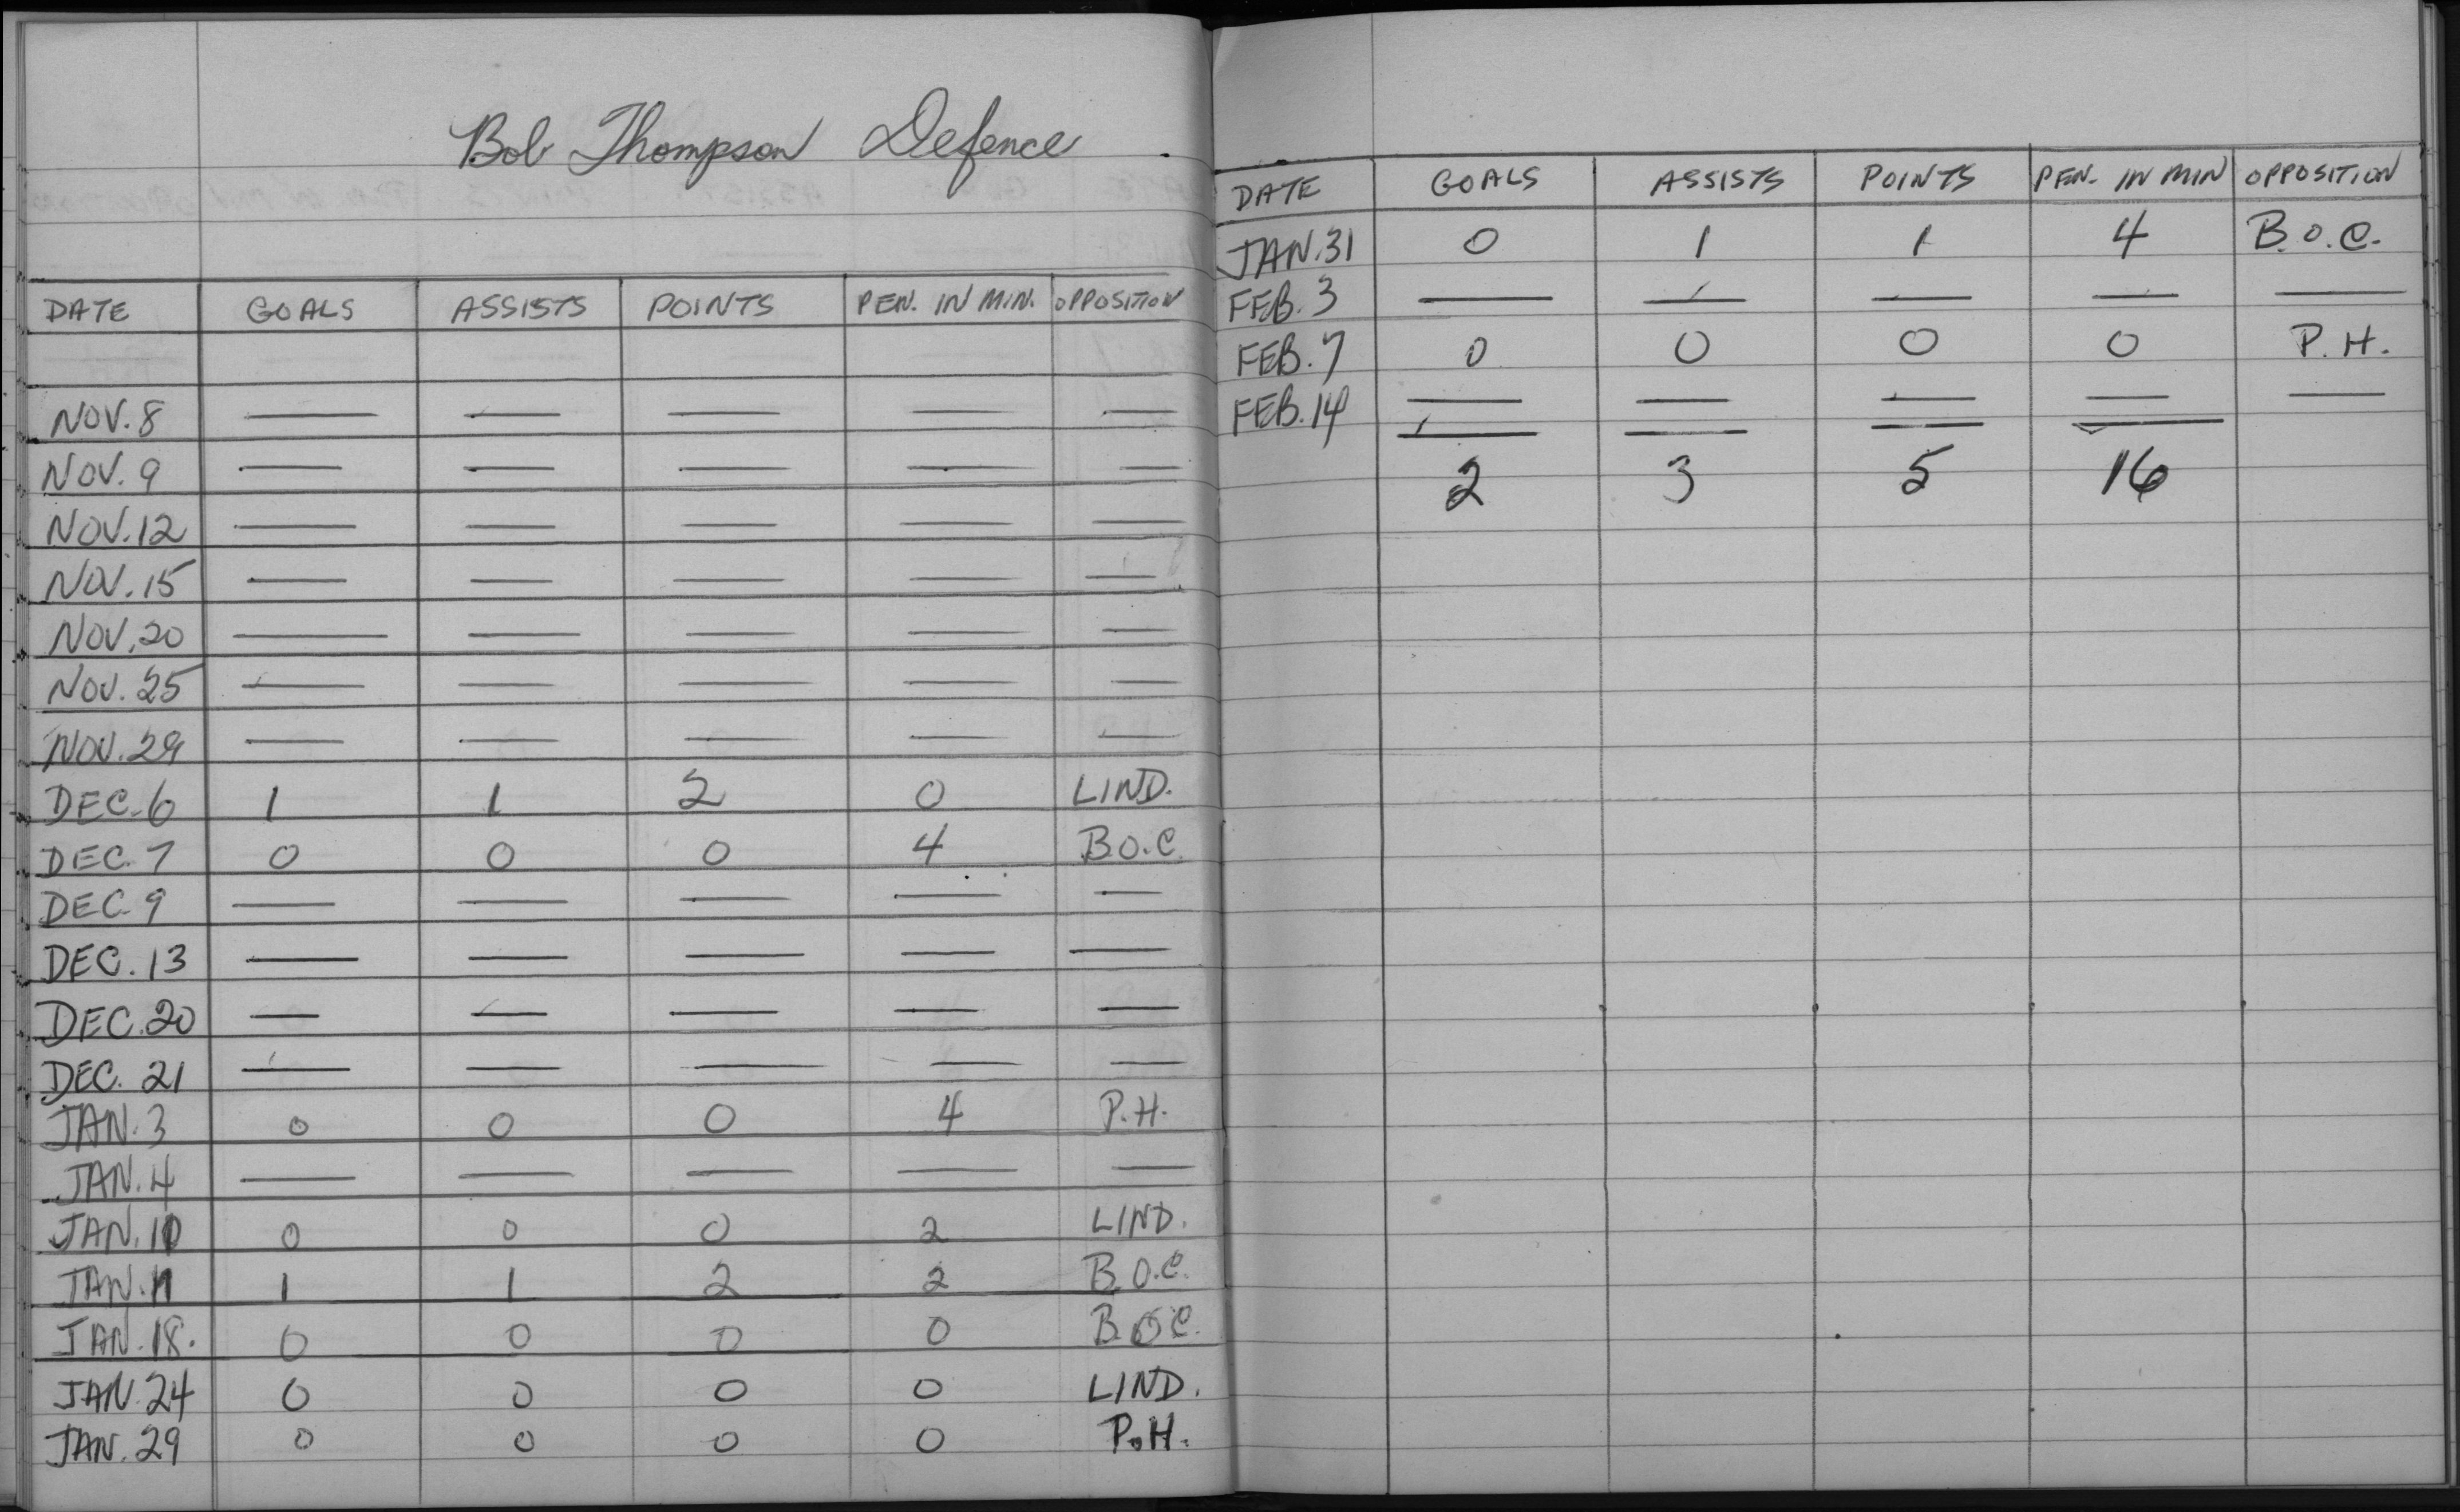 Bob Thompson Defence
DATE GOALS ASSISTS POINTS PEN. IN MIN. OPPOSITION
NOV. 8 — — — — —
NOV. 9 — — — — —
NOV. 12 — — — — —
NOV. 15 — — — — —
NOV. 20 — — — — —
NOV. 25 — — — — —
NOV. 29 — — — — —
DEC. 6 1 1 2 0 LIND.
DEC. 7 0 0 0 4 B.O.C.
DEC. 9 — — — — —
DEC. 13 — — — — —
DEC. 20 — — — — —
DEC. 21 — — — — —
JAN. 3 0 0 0 4 P.H.
JAN. 4 — — — — —
JAN. 10 0 0 0 2 LIND.
JAN. 11 1 1 2 2 B.O.C.
JAN. 18. 0 0 0 0 B.O.C.
JAN. 24 0 0 0 0 LIND.
JAN. 29 0 0 0 0 P.H.
DATE GOALS ASSISTS POINTS PEN. IN MIN OPPOSITION
JAN. 31 0 1 1 4 B.O.C.
FEB. 3 — — — — —
FEB. 7 0 0 0 0 P.H.
FEB. 14 — — — — —
2 3 5 16